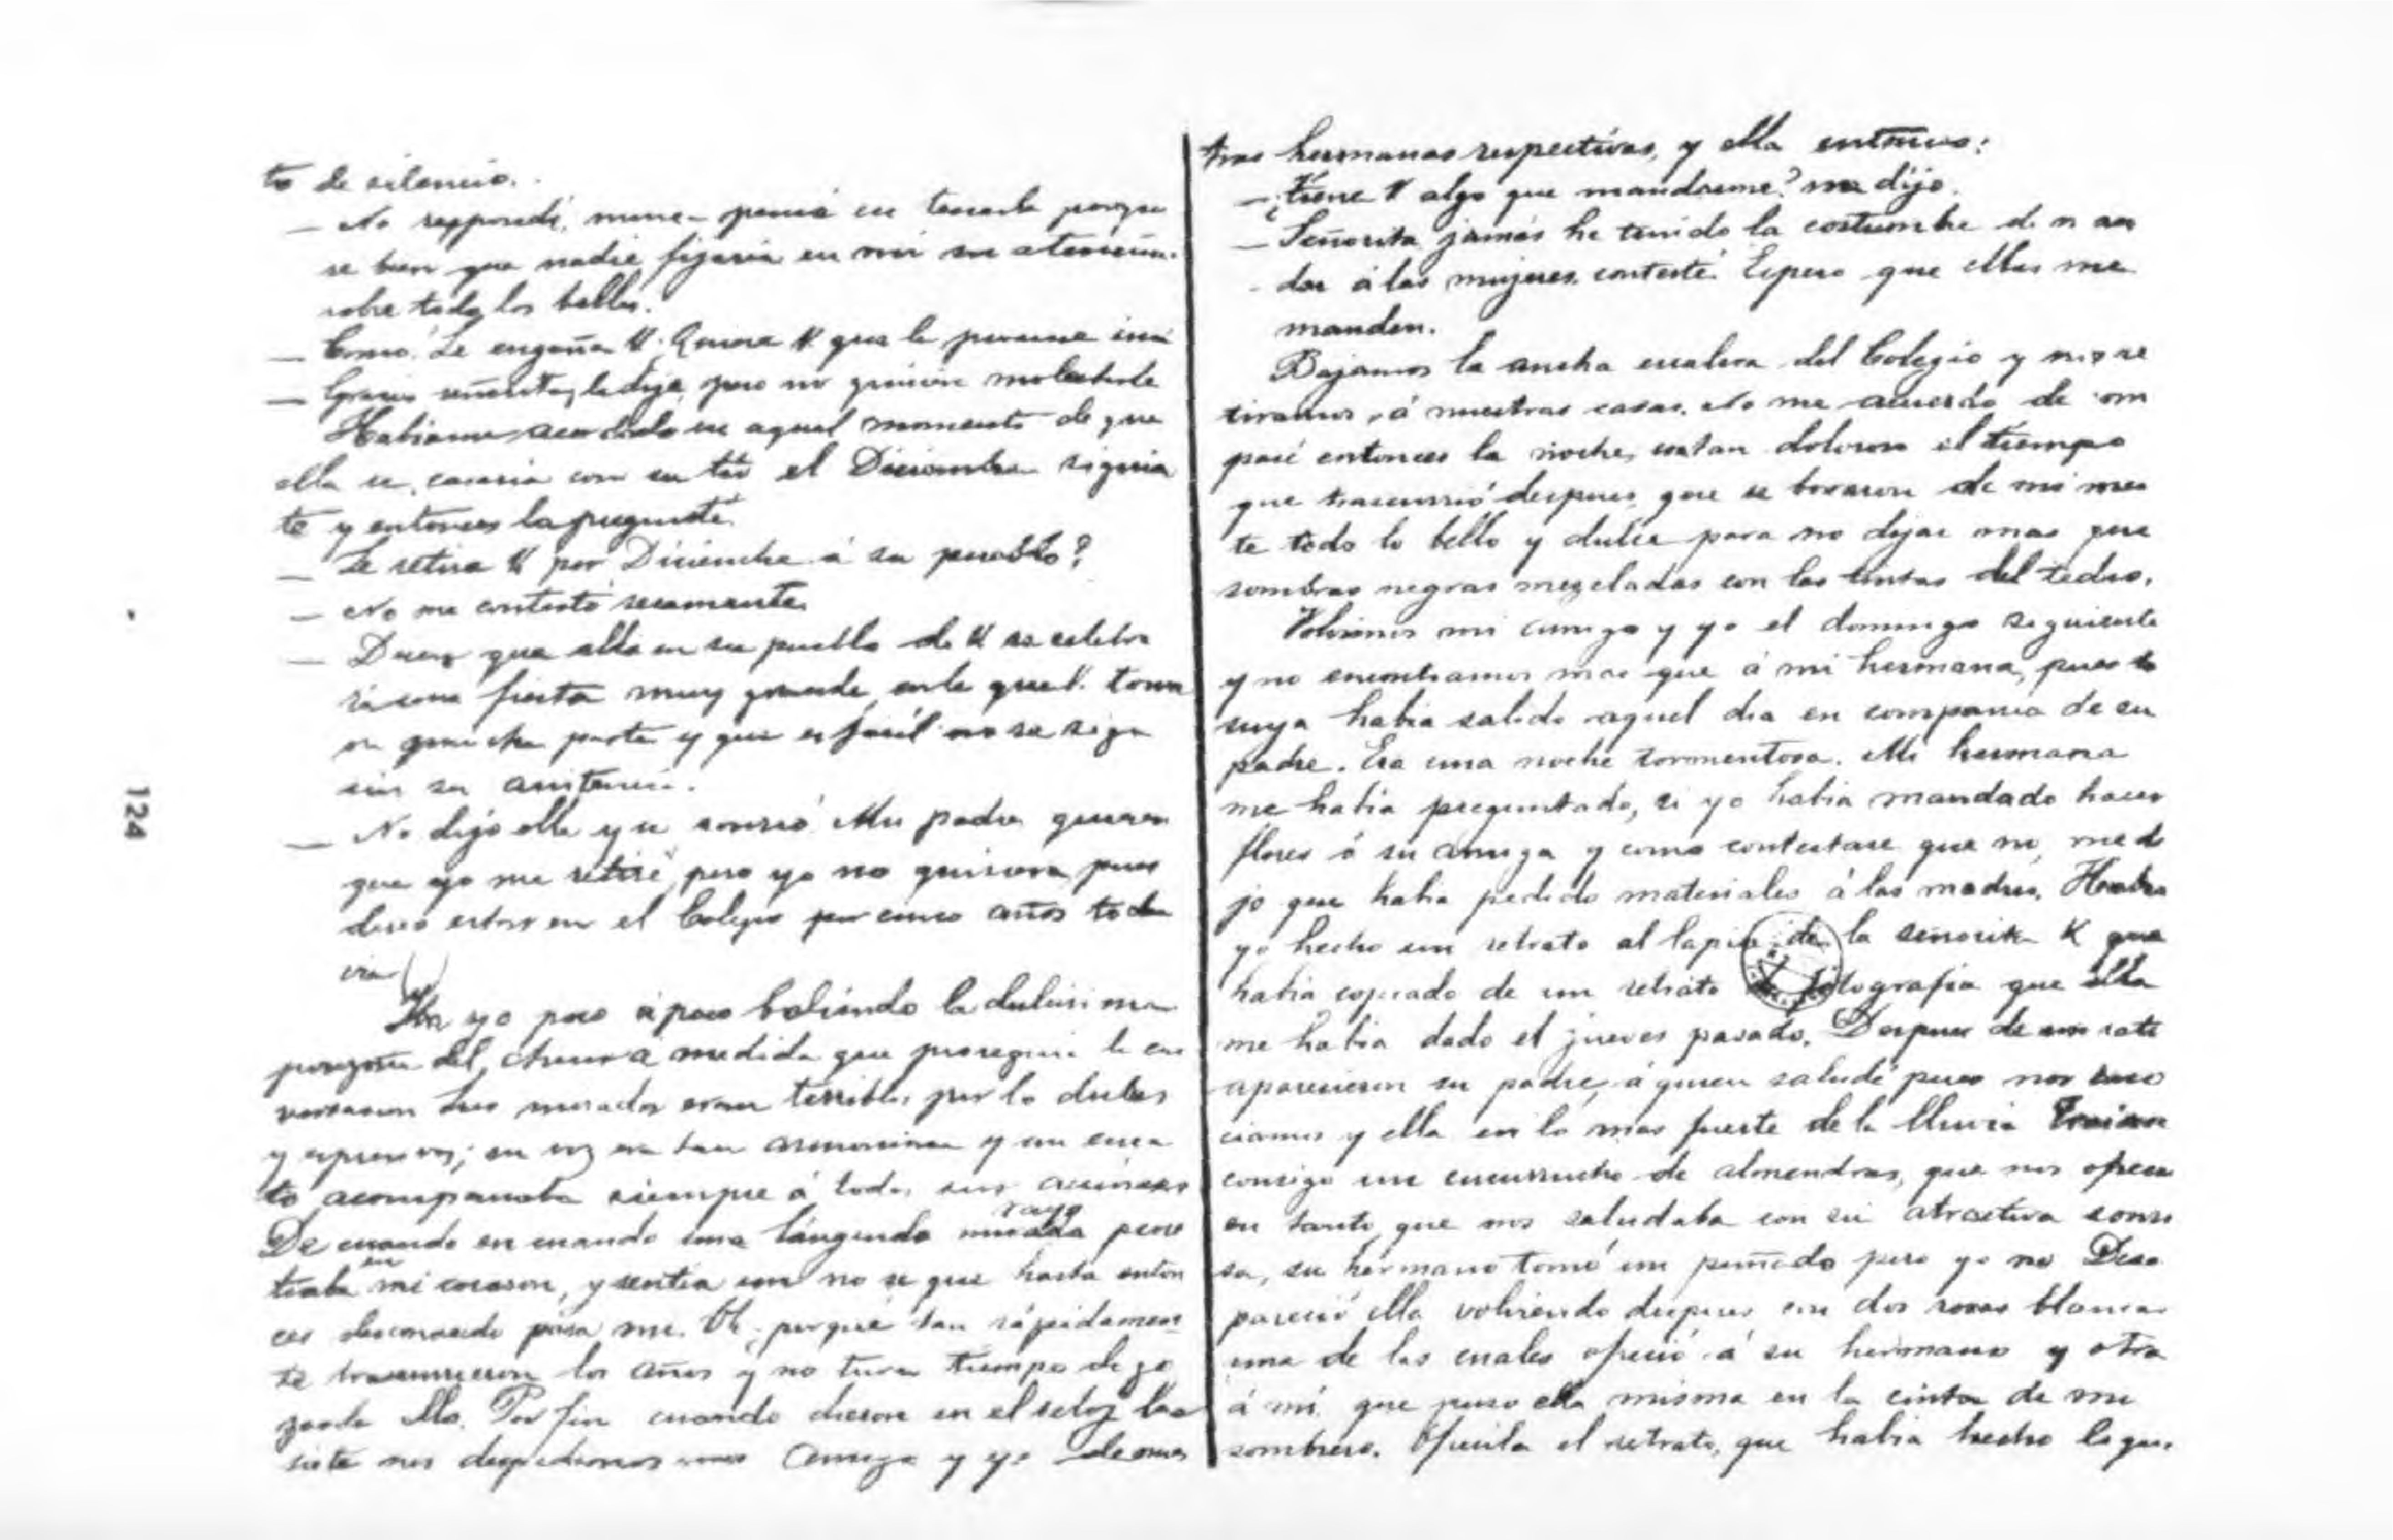 to de silencio.
— No respondí, nunca pensé en tenerle porque
se bien que nadie fijaria en mi su atencion.
sobre todo las bellas.
— Como! Se engaña V. Quiere V. que le presente una
— Gracias señorita, le dije, pero no quisiera molestarle
Habiame acordado en aquel momento de que
ella se casaria con su tio el Diciembre siguien
te y entonces la pregunté.
— Se retira V por Diciembre á su pueblo?
— No me contestó secamente.
— Dicen que alla en su pueblo de V se celebra
rá una fiesta muy grande, en la que V. toma
parte y que es facil no se siga
sin su asistencia.
— No dijo ella y se sonrió. Mis padres quieren
que yo me retire, pero yo no quisiera pues
deseo estar en el Colegio por cinco años toda
via
Iba yo poco á poco bebiendo la dulcisima
ponzoña del amor á medida que proseguia la con
versacion. Sus miradas eran terribles por lo dulces
y espresivas; su voz era tan armoniosa y un encan
to acompañaba siempre á todas sus acciones
De cuando en cuando una lánguida mirada rayo pene
traba en mi corazon, y sentia un no se que hasta enton
ces desconocido para mi. Oh, porqué tan rápidamen
te transcurrieron los años y no tuve tiempo de go
zarla ella. Por fin cuando dieron en el reloj las
siete nos despedimos amigo y yo de nues
124
tras hermanas respectivas, y ella entonces:
— ¿Tiene V algo que mandarme? me dijo.
— Señorita jamás he tenido la costumbre de man
dar á las mujeres, contesté. Espero que ellas me
manden.
Bajamos la ancha escalera del Colegio y nos re
tiramos á nuestras casas. No me acuerdo de com
pasé entonces la noche, es tan doloroso el tiempo
que trascurrió despues, que se borraron de mi men
te todo lo bello y dulce para no dejar mas que
sombras negras mezcladas con las tintas del tedio.
Volvimos mi amigo y yo el domingo siguiente
y no encontramos mas que á mi hermana, pues la
suya habia salido aquel dia en compania de su
padre. Era una noche tormentosa. Mi hermana
me habia preguntado, si yo habia mandado hacer
flores á su amiga y como contestase que no, me di
jo que habia pedido materiales á las madres. Habia
yo hecho un retrato al lapiz de la señorita K que
habia copiado de un retrato de fotografia que ella
me habia dado el jueves pasado. Despues de un rato
aparecieron su padre, á quien saludé pues nos cono
ciamos y ella en lo mas fuerte de la lluvia. Traian
consigo un cucurrucho de almendras, que nos ofrecia
en tanto que nos saludaba con su atractiva sonri
sa, su hermano tomó un puñado pero yo no. Desa
pareció ella volviendo despues con dos rosas blancas
una de las cuales ofreció á su hermano y otra
á mi que puso ella misma en la cinta de mi
sombrero. Ofrecíla el retrato, que habia hecho lo que